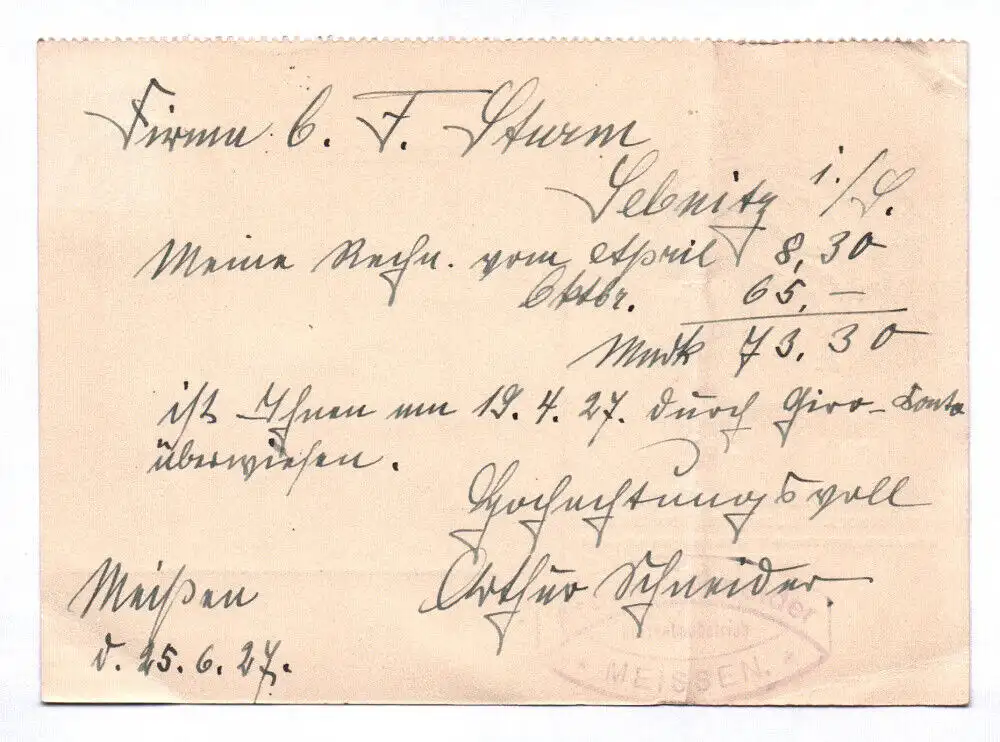 Firma C. F. Sturm
Sebnitz i./S.
Meine Rechn. vom April 8,30
Oktbr. 65.—
Mark 73.30
ist Ihnen am 19.4.27. durch Giro-Konto
überwiesen.
Hochachtungsvoll
Arthur Schneider.
Meißen
d. 25.6.27.
MEISSEN.